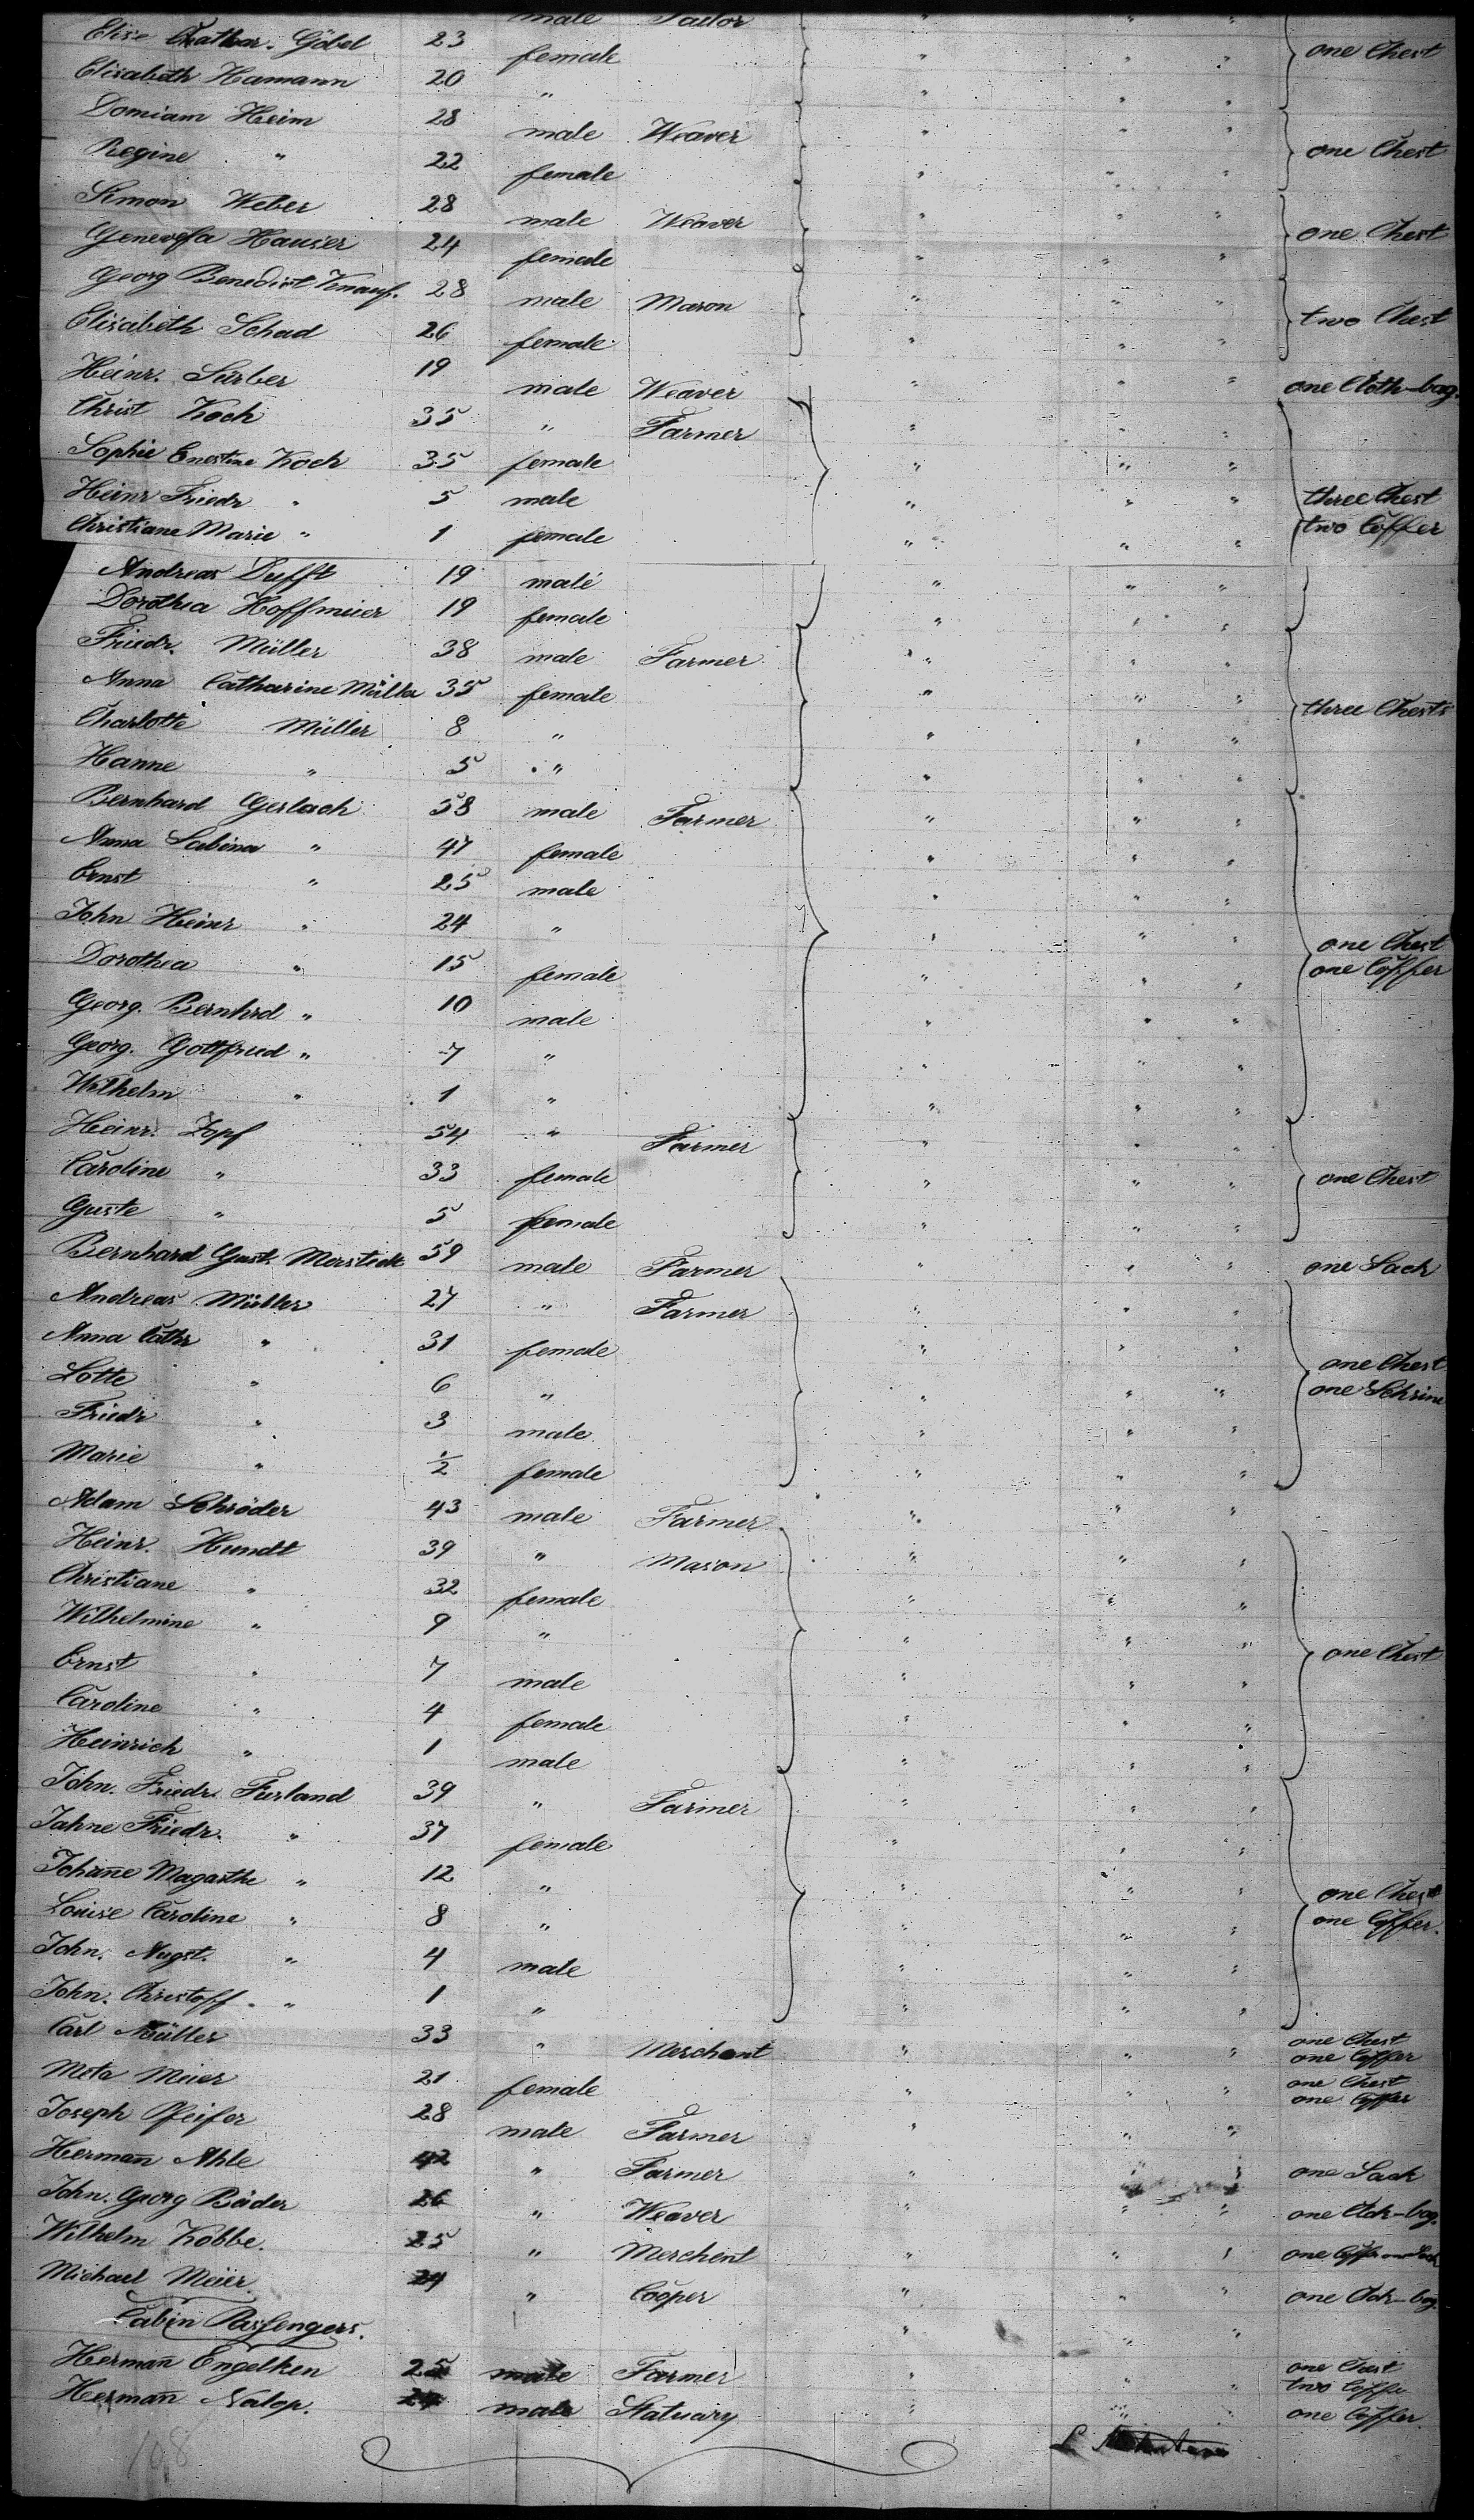 male Tailor " " "
Elise Cathar. Göbel 23 female " " " one Chest
Elisabeth Hamann 20 " " " "
Domiam Heim 28 male Weaver " " " one Chest
Regine " 22 female " " "
Simon Weber 28 male Weaver " " " one Chest
Genevefa Hauser 24 female " " "
Georg Benedict Knauf. 28 male Mason " " " two Chest
Elisabeth Schad 26 female " " "
Heinr. Sürber 19 male Weaver " " " one Cloth-bag.
Christ Koch 35 " Farmer " " "
Sophie Enestine Koch 35 female " " "
Heinr Friedr " 5 male " " " three Chest
Christiane Marie " 1 female " " " two Coffer
Andreas Dufft 19 male " " "
Dorothea Hoffmeier 19 female " " "
Friedr. Müller 38 male Farmer " " "
Anna Catharine Müller 35 female " " " three Chests
Charlotte Müller 8 " " " "
Hanne " 5 " " " "
Bernhard Gerlach 58 male Farmer " " "
Anna Sabina " 47 female " " "
Ernst " 25 male " " "
John Heinr " 24 " " " " one Chest
Dorothea " 15 female " " " one Coffer
Georg. Bernhrd " 10 male " " "
Georg. Gottfried " 7 " " " "
Wilhelm " 1 " " " "
Heinr. Zopf 54 " Farmer " " "
Caroline " 33 female " " " one Chest
Guste " 5 female " " "
Bernhard Gust. Morstedt 59 male Farmer " " " one Sack
Andreas Müller 27 " Farmer " " "
Anna Cathr " 31 female " " " one Chest
Lotte " 6 " " " " one Schrine
Friedr " 3 male " " "
Marie " 1/2 female " " "
Adam Schröder 43 male Farmer " " "
Heinr. Hundt 39 " Mason " " "
Christiane " 32 female " " "
Wilhelmine " 9 " " " "
Ernst " 7 male " " " one Chest
Caroline " 4 female " " "
Heinrich " 1 male " " "
John. Friedr. Furland 39 " Farmer " " "
Jahne Friedr. " 37 female " " "
Johanne Magarthe " 12 " " " " one Chest
Louise Caroline " 8 " " " " one Coffer.
John. Augst. " 4 male " " "
John. Christoff. " 1 " " " "
Carl Müller 33 " Merchant " " " one Chest one Coffer
Meta Meier 21 female " " " one Chest one Coffer
Joseph Pfeifer 28 male Farmer " " "
Hermann Ahle 42 " Farmer " " " one Sack
John. Georg Bäder 26 " Weaver " " " one Cloh-bag.
Wilhelm Kobbe. 25 " Merchent " " " one Coffer one Sack
Michael Meier 24 " Cooper " " " one Cloh-bag
Cabin Passengers. " " "
Hermann Engelken 25 male Farmer " " one Chest two Coffer
Hermann Nalop. 24 male Statuary " " " one Coffer.
108